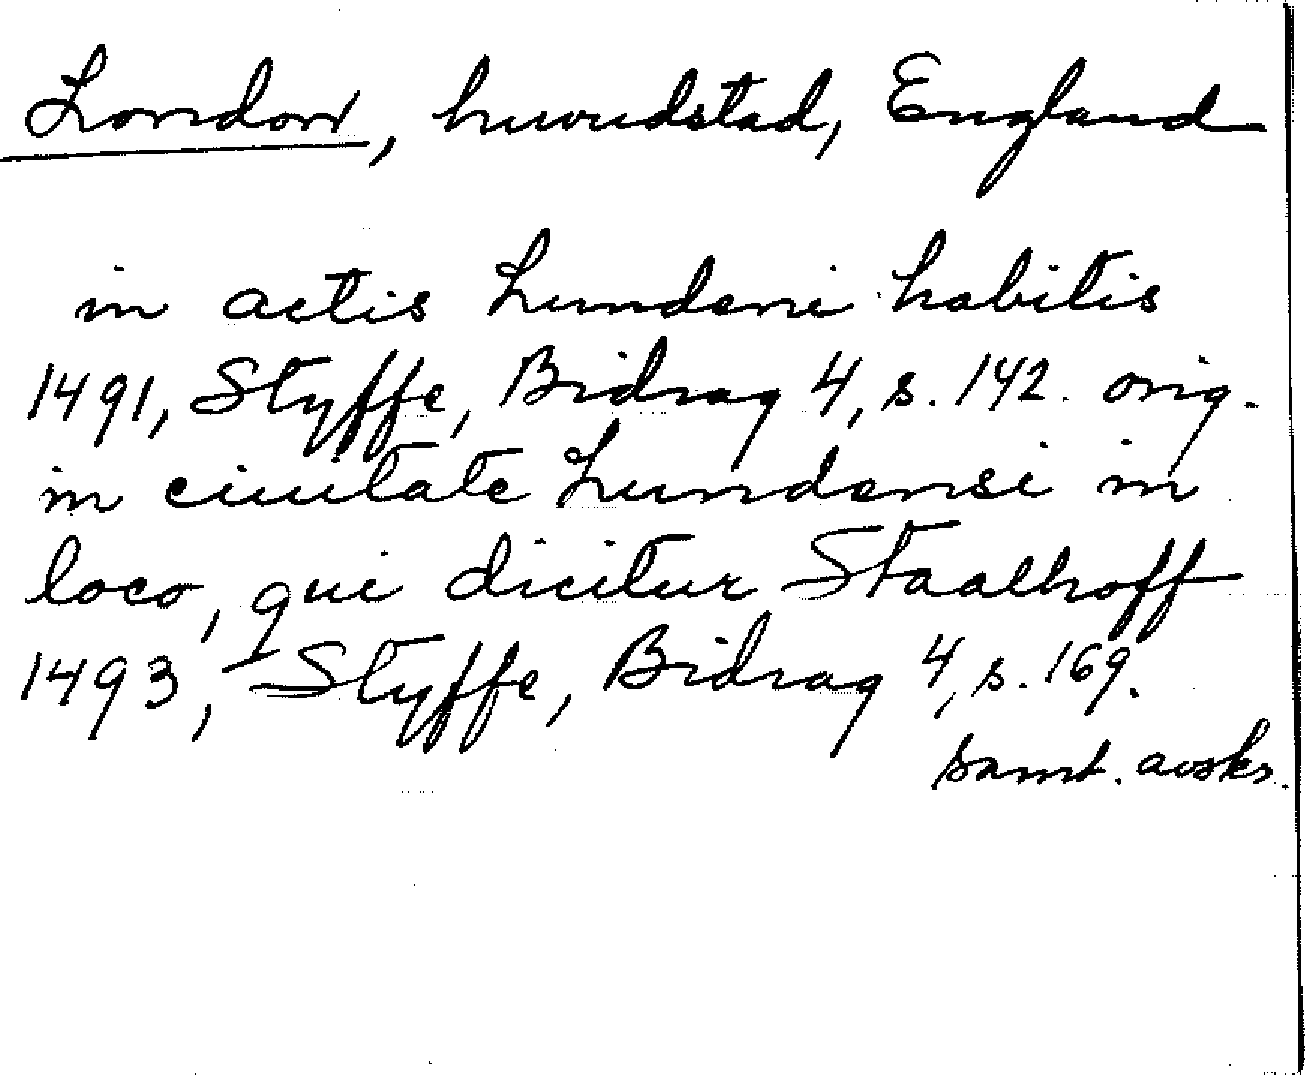 London, huvudstad, England
in actis Lundeni habitis
1491, Styffe, Bidrag 4, s. 142. orig.
in ciuitate Lundensi in
loco, qui dicitur Staalhoff
1493, Styffe, Bidrag 4, s. 169.
samt. avskr.